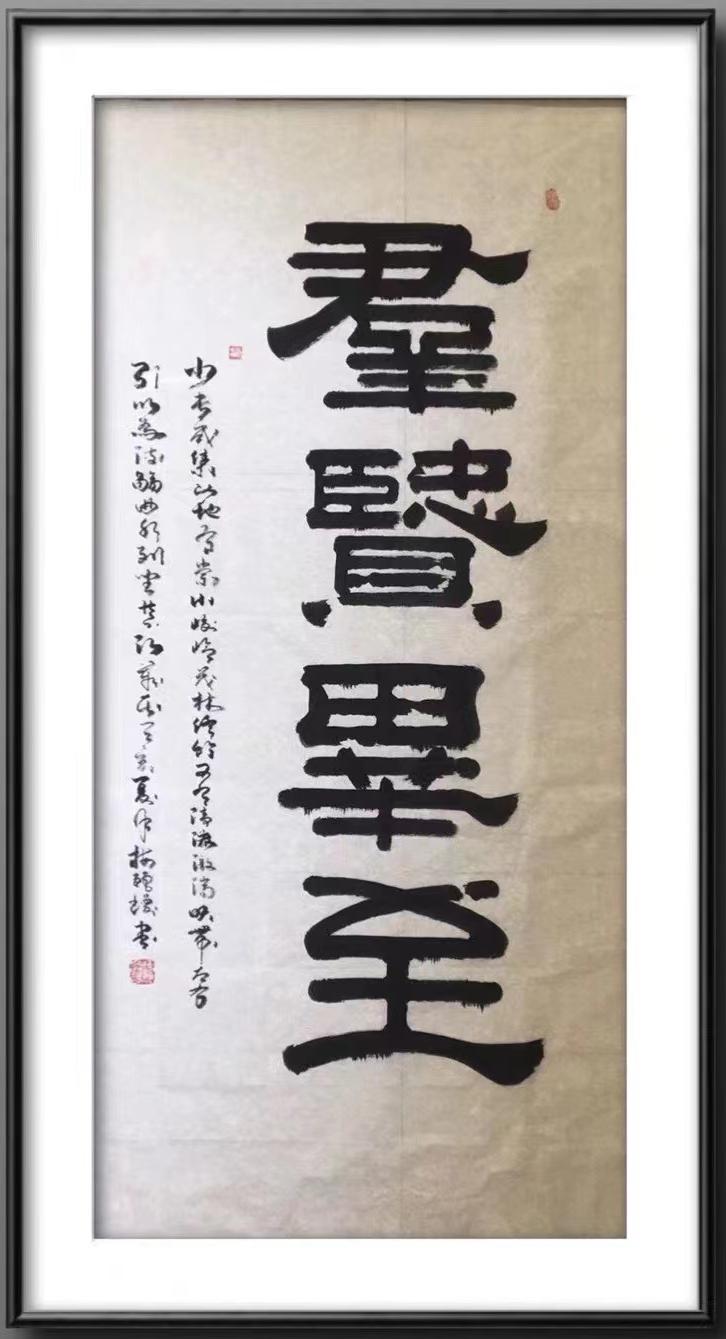 羣賢畢至
少長咸集此地有崇山峻領茂林修竹又有清流激湍映帶左右
引以為流觴曲水列坐其次
夏月
書